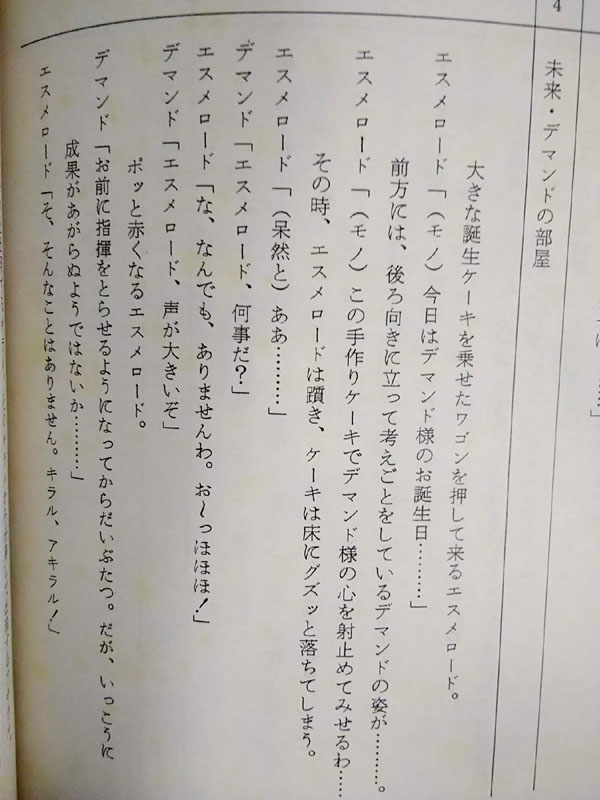 4
未来・デマンドの部屋
大きな誕生ケーキを乗せたワゴンを押して来るエスメロード。
エスメロード「（モノ）今日はデマンド様のお誕生日………」
前方には、後ろ向きに立って考えごとをしているデマンドの姿が………。
エスメロード「（モノ）この手作りケーキでデマンド様の心を射止めてみせるわ……
その時、エスメロードは躓き、ケーキは床にグズッと落ちてしまう。
エスメロード「（呆然と）ああ………」
デマンド「エスメロード、何事だ？」
エスメロード「な、なんでも、ありませんわ。お〜っほほほ！」
デマンド「エスメロード、声が大きいぞ」
ポッと赤くなるエスメロード。
デマンド「お前に指揮をとらせるようになってからだいぶたつ。だが、いっこうに
成果があがらぬようではないか………」
エスメロード「そ、そんなことはありません。キラル、アキラル！」